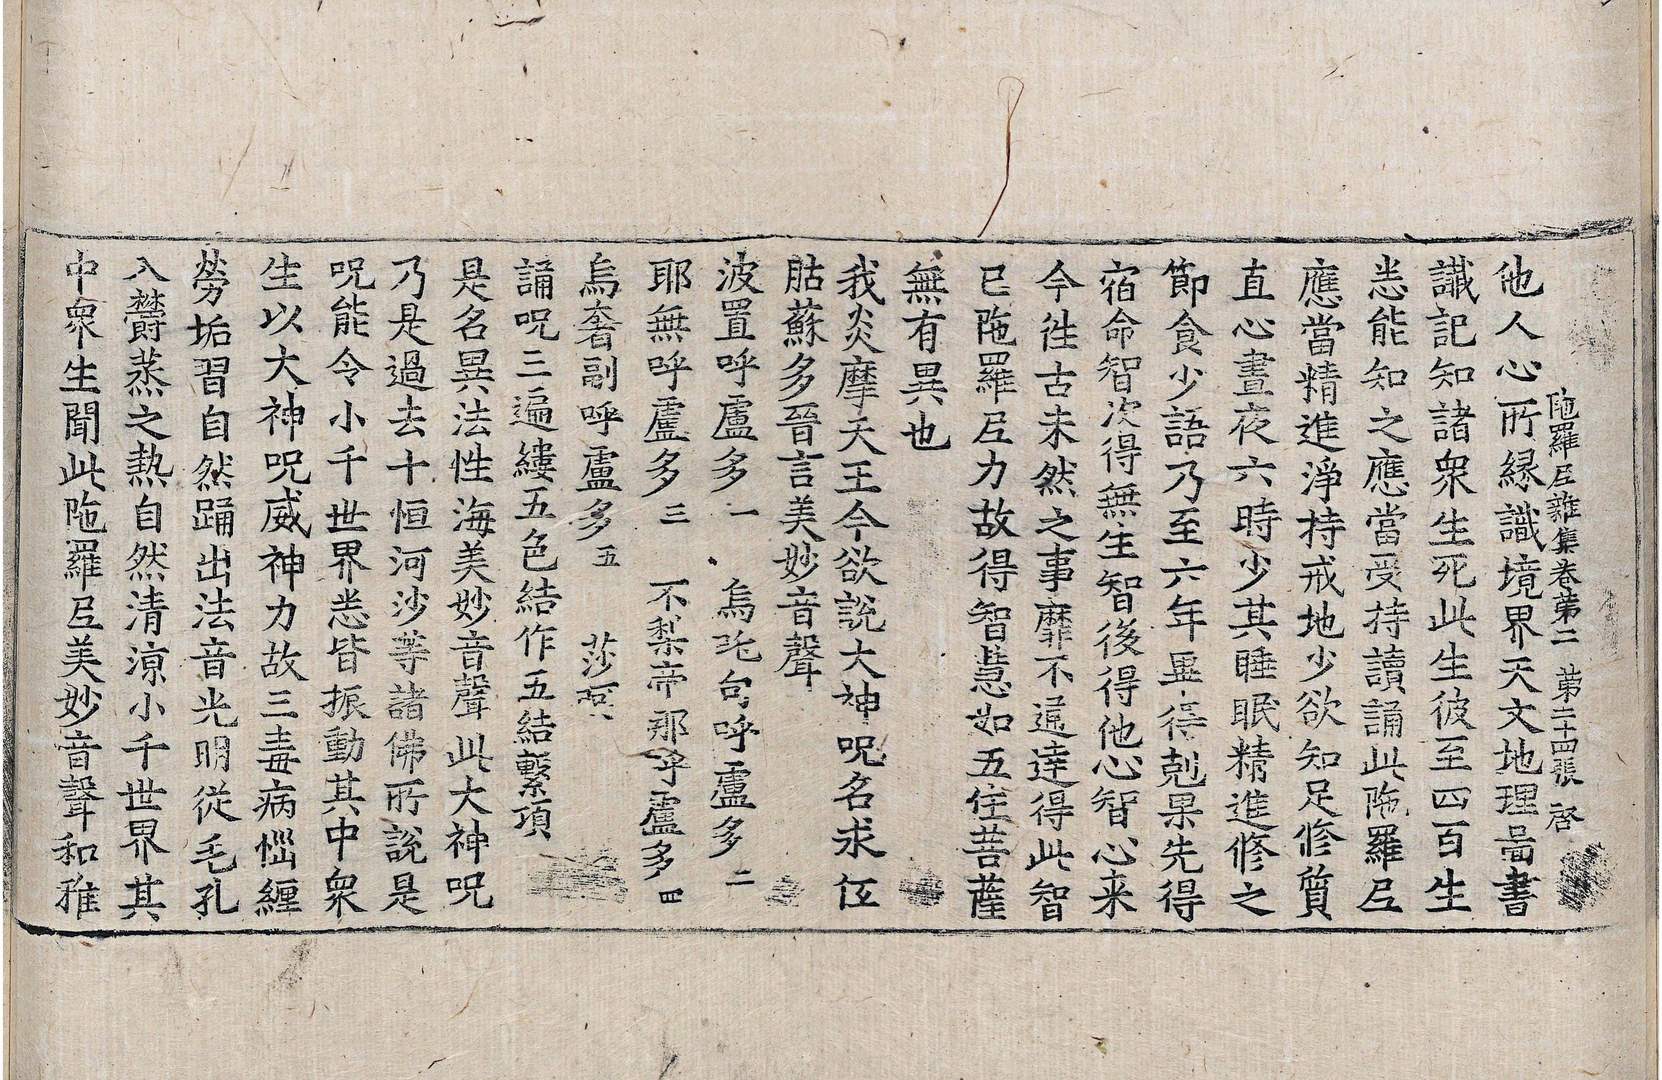 陁羅尼雜集卷第二　第二十四張　啓
他人心所縁識境界天文地理啚書
讖記知諸衆生死此生彼至四百生
悉能知之應當受持讀誦此陁羅尼
應當精進淨持戒地少欲知足修質
直心晝夜六時少其睡眠精進修之
節食少語乃至六年並得剋果先得
宿命智次得無生智後得他心智心来
今徃古未然之事靡不逞達得此智
已陁羅尼力故得智慧如五住菩薩
無有異也
我炎摩天王今欲說大神呪名求仾
胋蘇多晉言美妙音聲
波置呼盧多 一　烏吒句呼盧多 二
耶無呼盧多 三　不梨帝那呼盧多 四
烏奢副呼盧多 五　莎呵
誦呪三遍縷五色結作五結繫項
是名異法性海美妙音聲此大神呪
乃是過去十恒河沙等諸佛所說是
呪能令小千世界悉皆振動其中衆
生以大神呪威神力故三毒病惱纏
勞垢習自然踊出法音光明從毛孔
入欝蒸之熱自然清凉小千世界其
中衆生聞此陁羅尼美妙音聲和雅